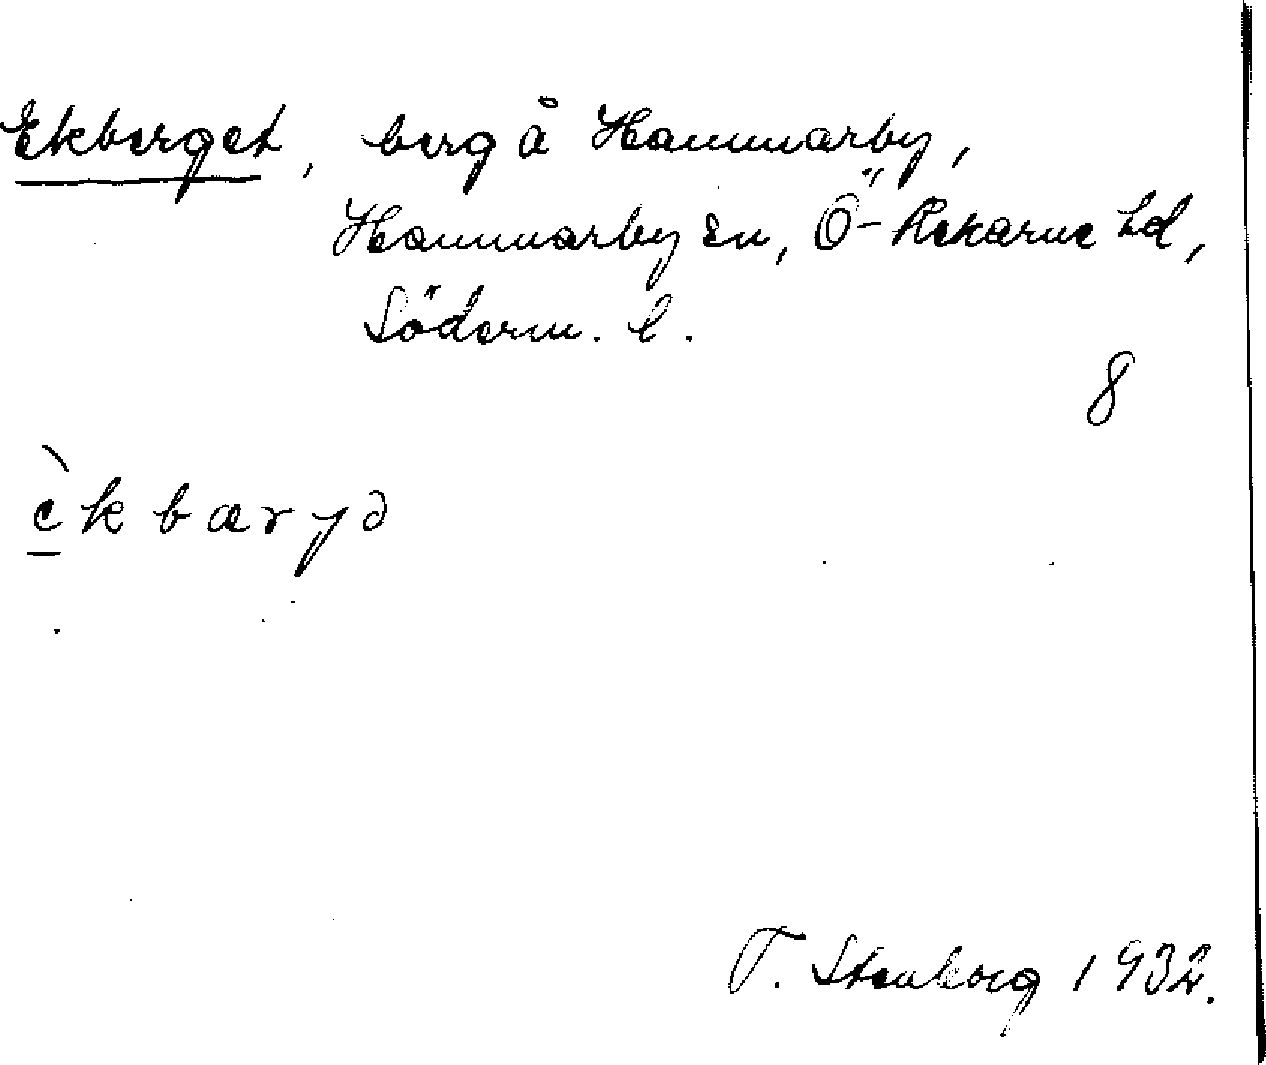 Ekberget, berg å Hammarby,
Hammarby sn, Ö-Rekarne hd,
Söderm. l.
8
èkbæryə
T. Stenborg 1932.